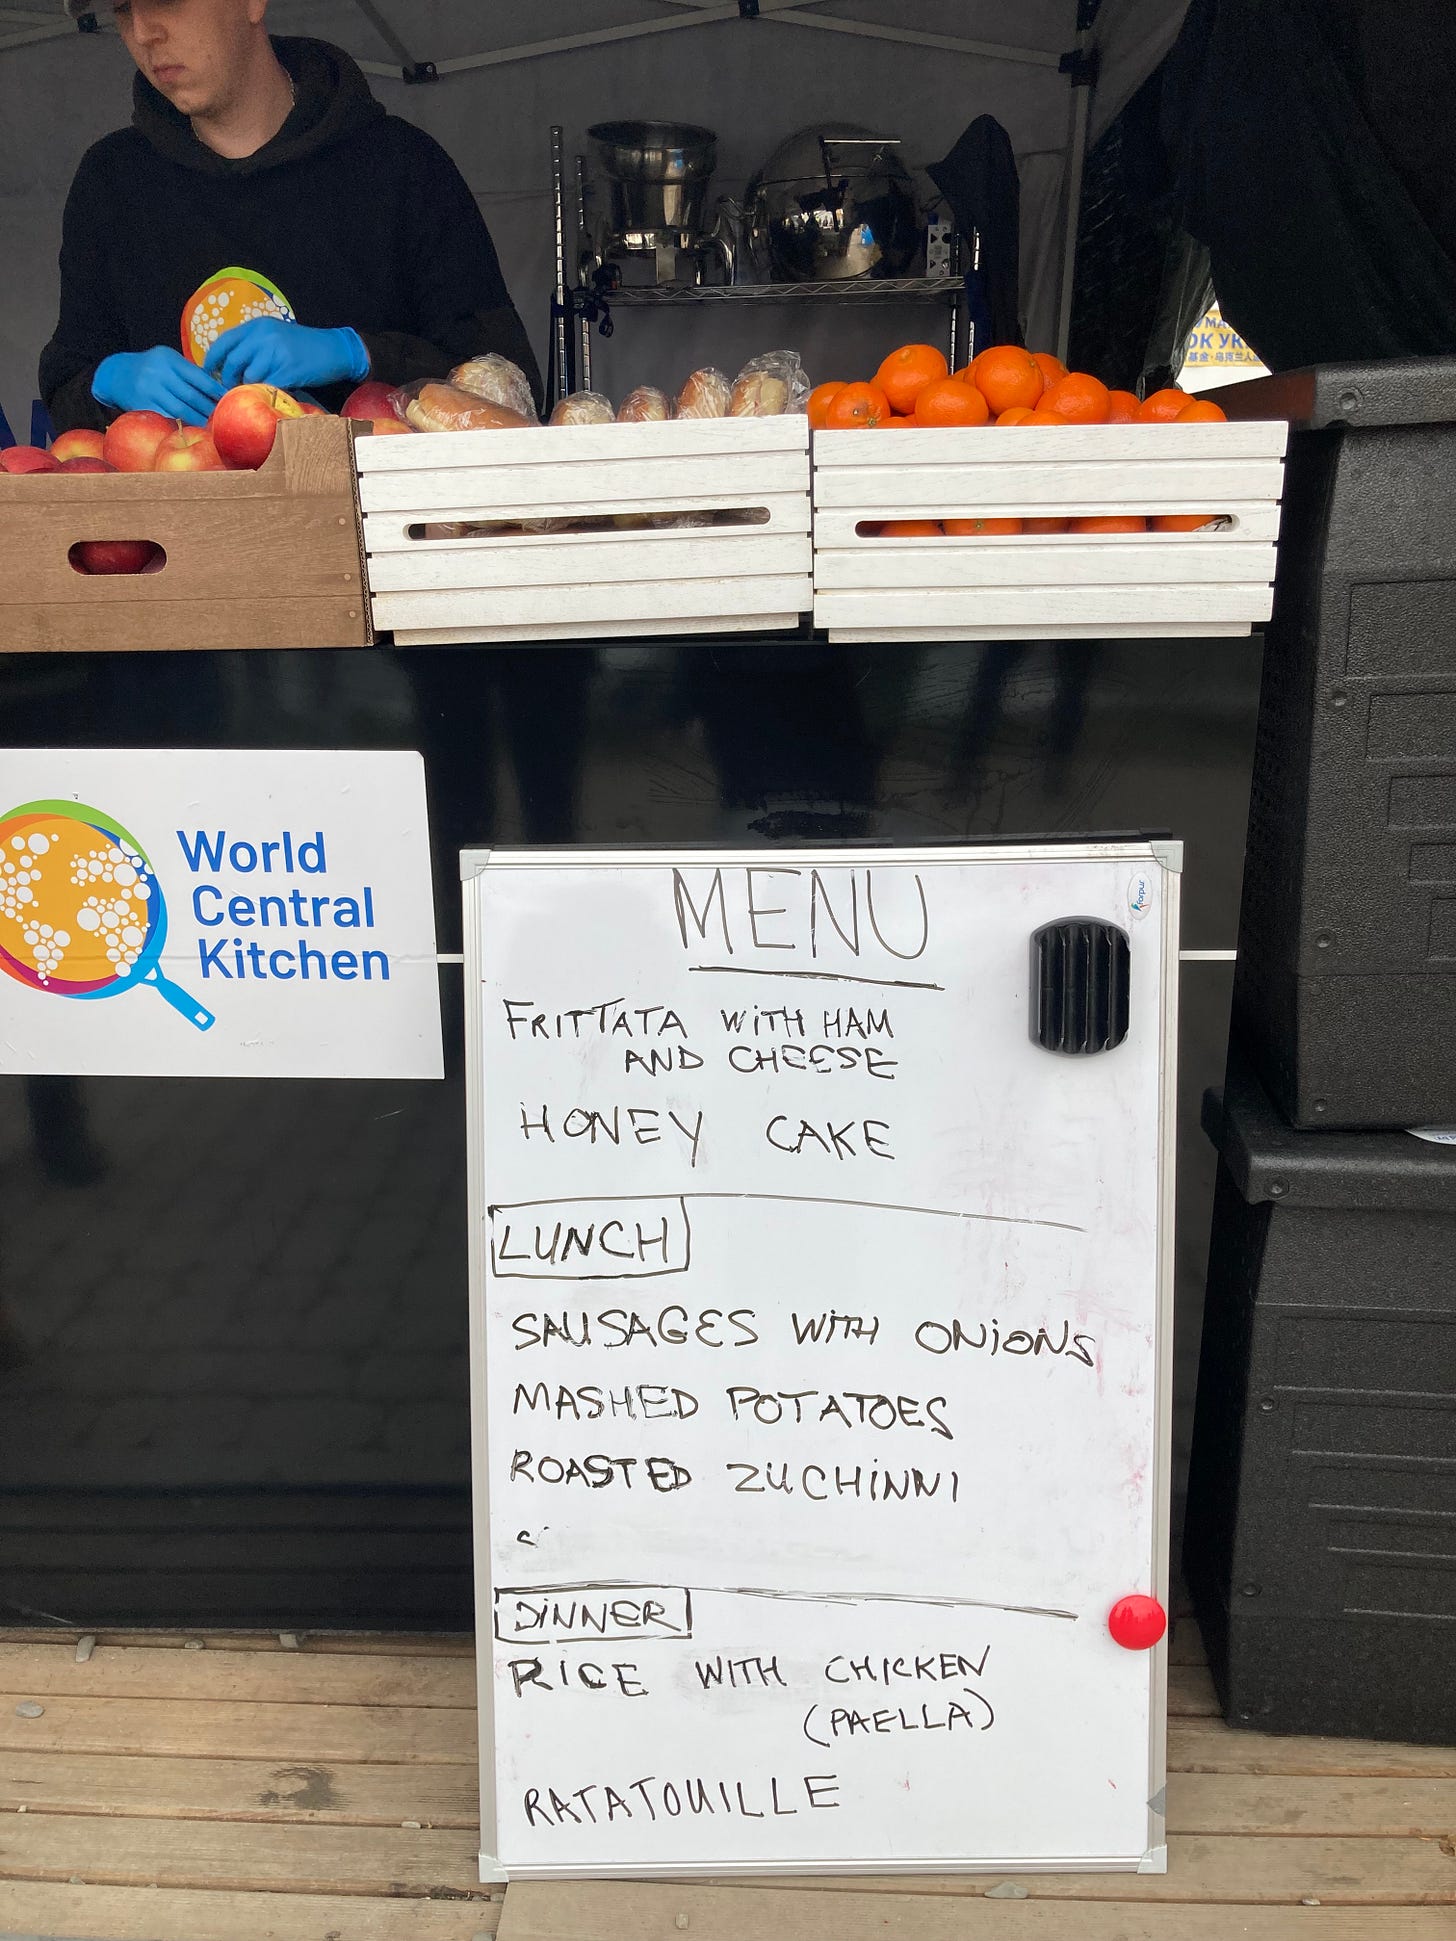 World
Central
Kitchen
MENU
FRITTATA WITH HAM
AND CHEESE
HONEY CAKE
LUNCH
SAUSAGES WITH ONIONS
MASHED POTATOES
ROASTED ZUCHINNI
DINNER
RICE WITH CHICKEN
(PAELLA)
RATATOUILLE